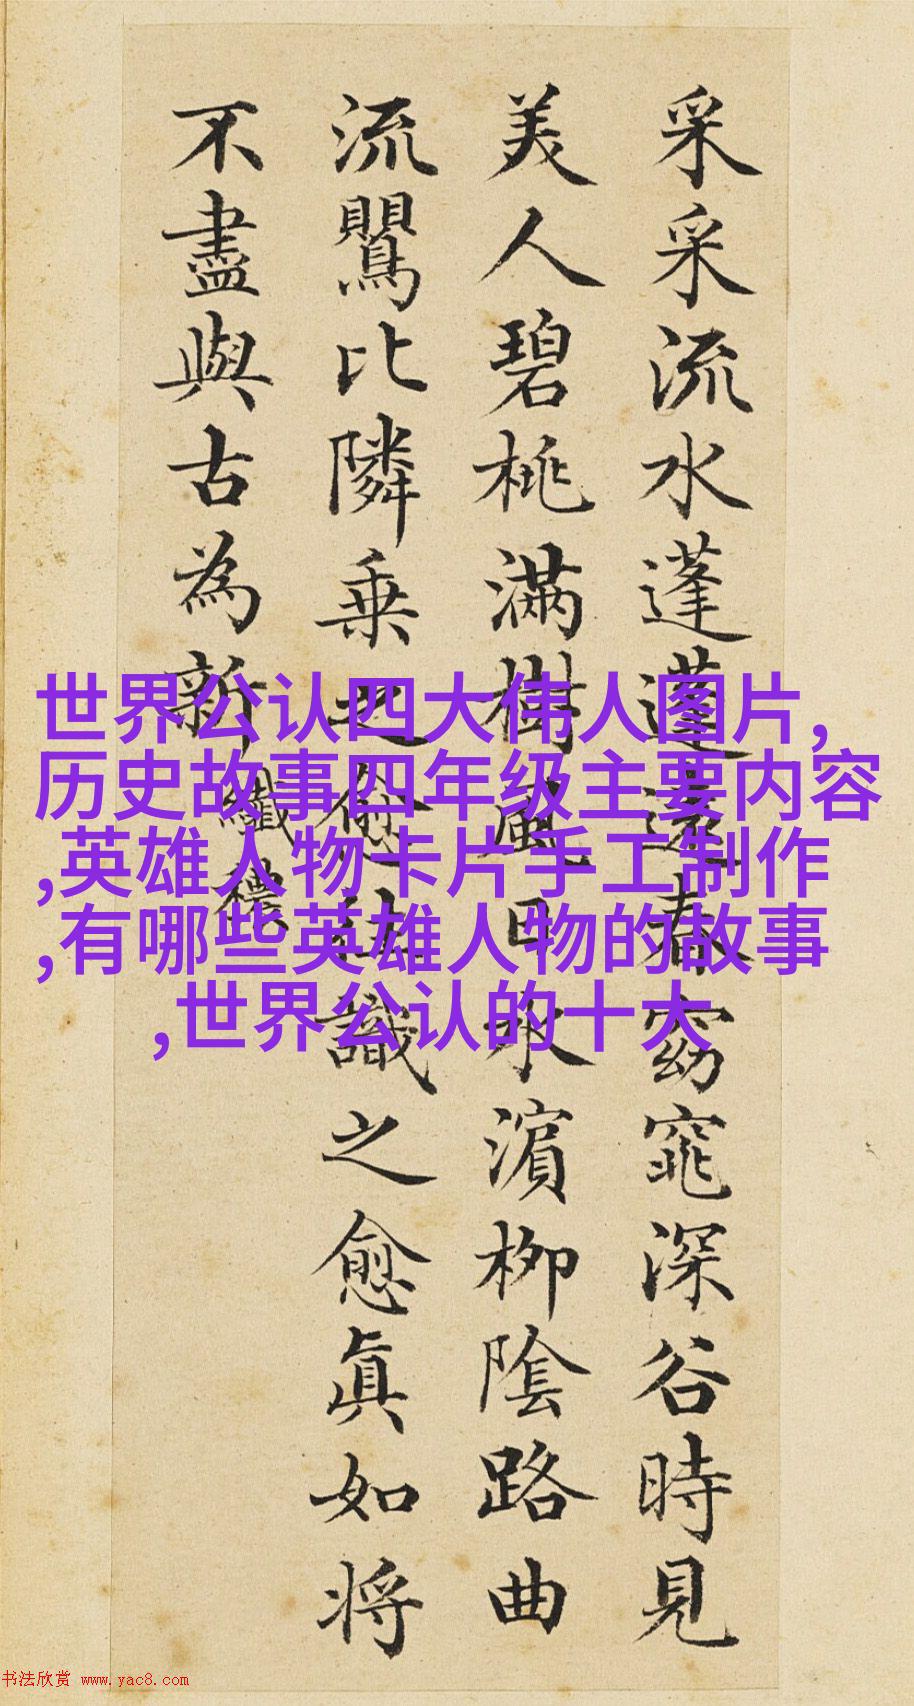 采采流水蓬蓬遠春窈窕深谷時見
美人碧桃滿樹風日水濱柳陰路曲
流鸎比隣乗之愈往識之愈眞如将
不盡與古為新
纖穠
世界公认四大伟人图片,
历史故事四年级主要内容
,英雄人物卡片手工制作
,有哪些英雄人物的故事
,世界公认的十大
书法欣赏 www.yac8.com